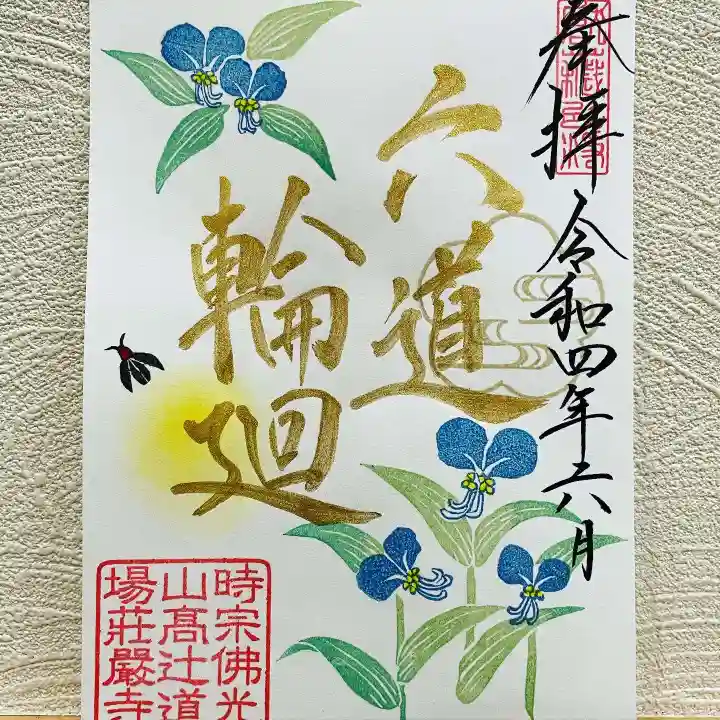 奉拝
令和四年六月
六道
輪廻
時宗佛光
山髙辻道
場荘嚴寺